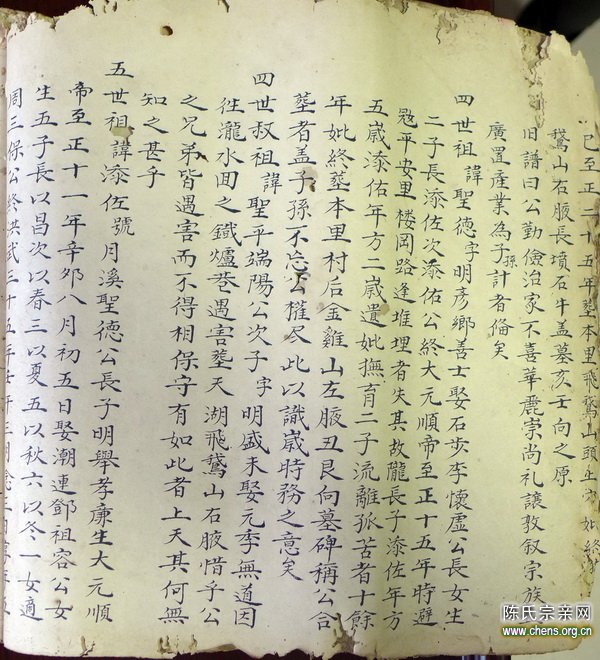 至正二十五年塟本里飛鵞山頭生
鵞山右腋長墳石牛盖墓亥壬向之原
旧譜曰公勤儉治家不喜華麗崇尚礼讓敦叙宗族
廣置產業為子孫計者偹矣
四世祖諱聖德字明彥鄉善士娶石步李懷盧公長女生
二子長添佐次添佑公終大元順帝至正十五年時避
冦平安里楼岡路逢堆埋者失其故隴長子添佐年方
五嵗添佑年方二嵗遺妣撫育二子流離孤苦者十餘
年妣終塟本里村后金雞山左腋丑艮向墓碑稱公合
塟者盖子孫不忘公權尺此以識嵗時務之意矣
四世叔祖諱聖平端陽公次子字明盛未娶元季無道因
徃瀧水回之鐡爐巷遇害塟天湖飛鵞山石腋惜乎公
之兄弟皆遇害而不得相保守有如此者上天其何無
知之甚乎
五世祖諱添佐號月溪聖德公長子明舉孝廉生大元順
帝至正十一年辛卯八月初五日娶潮連鄧祖容公女
生五子長以昌次以春三以夏五以秋六以冬一女適
周三保公終洪武三十五年
陈氏宗亲网
www.chens.org.cn